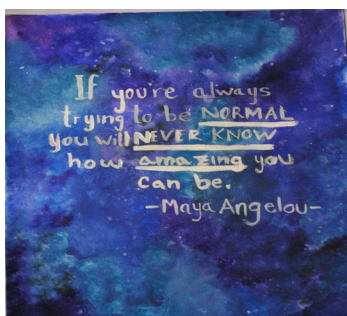 If you're always
trying to be NORMAL
you will NEVER KNOW
how amazing you
can be.
-Maya Angelou-